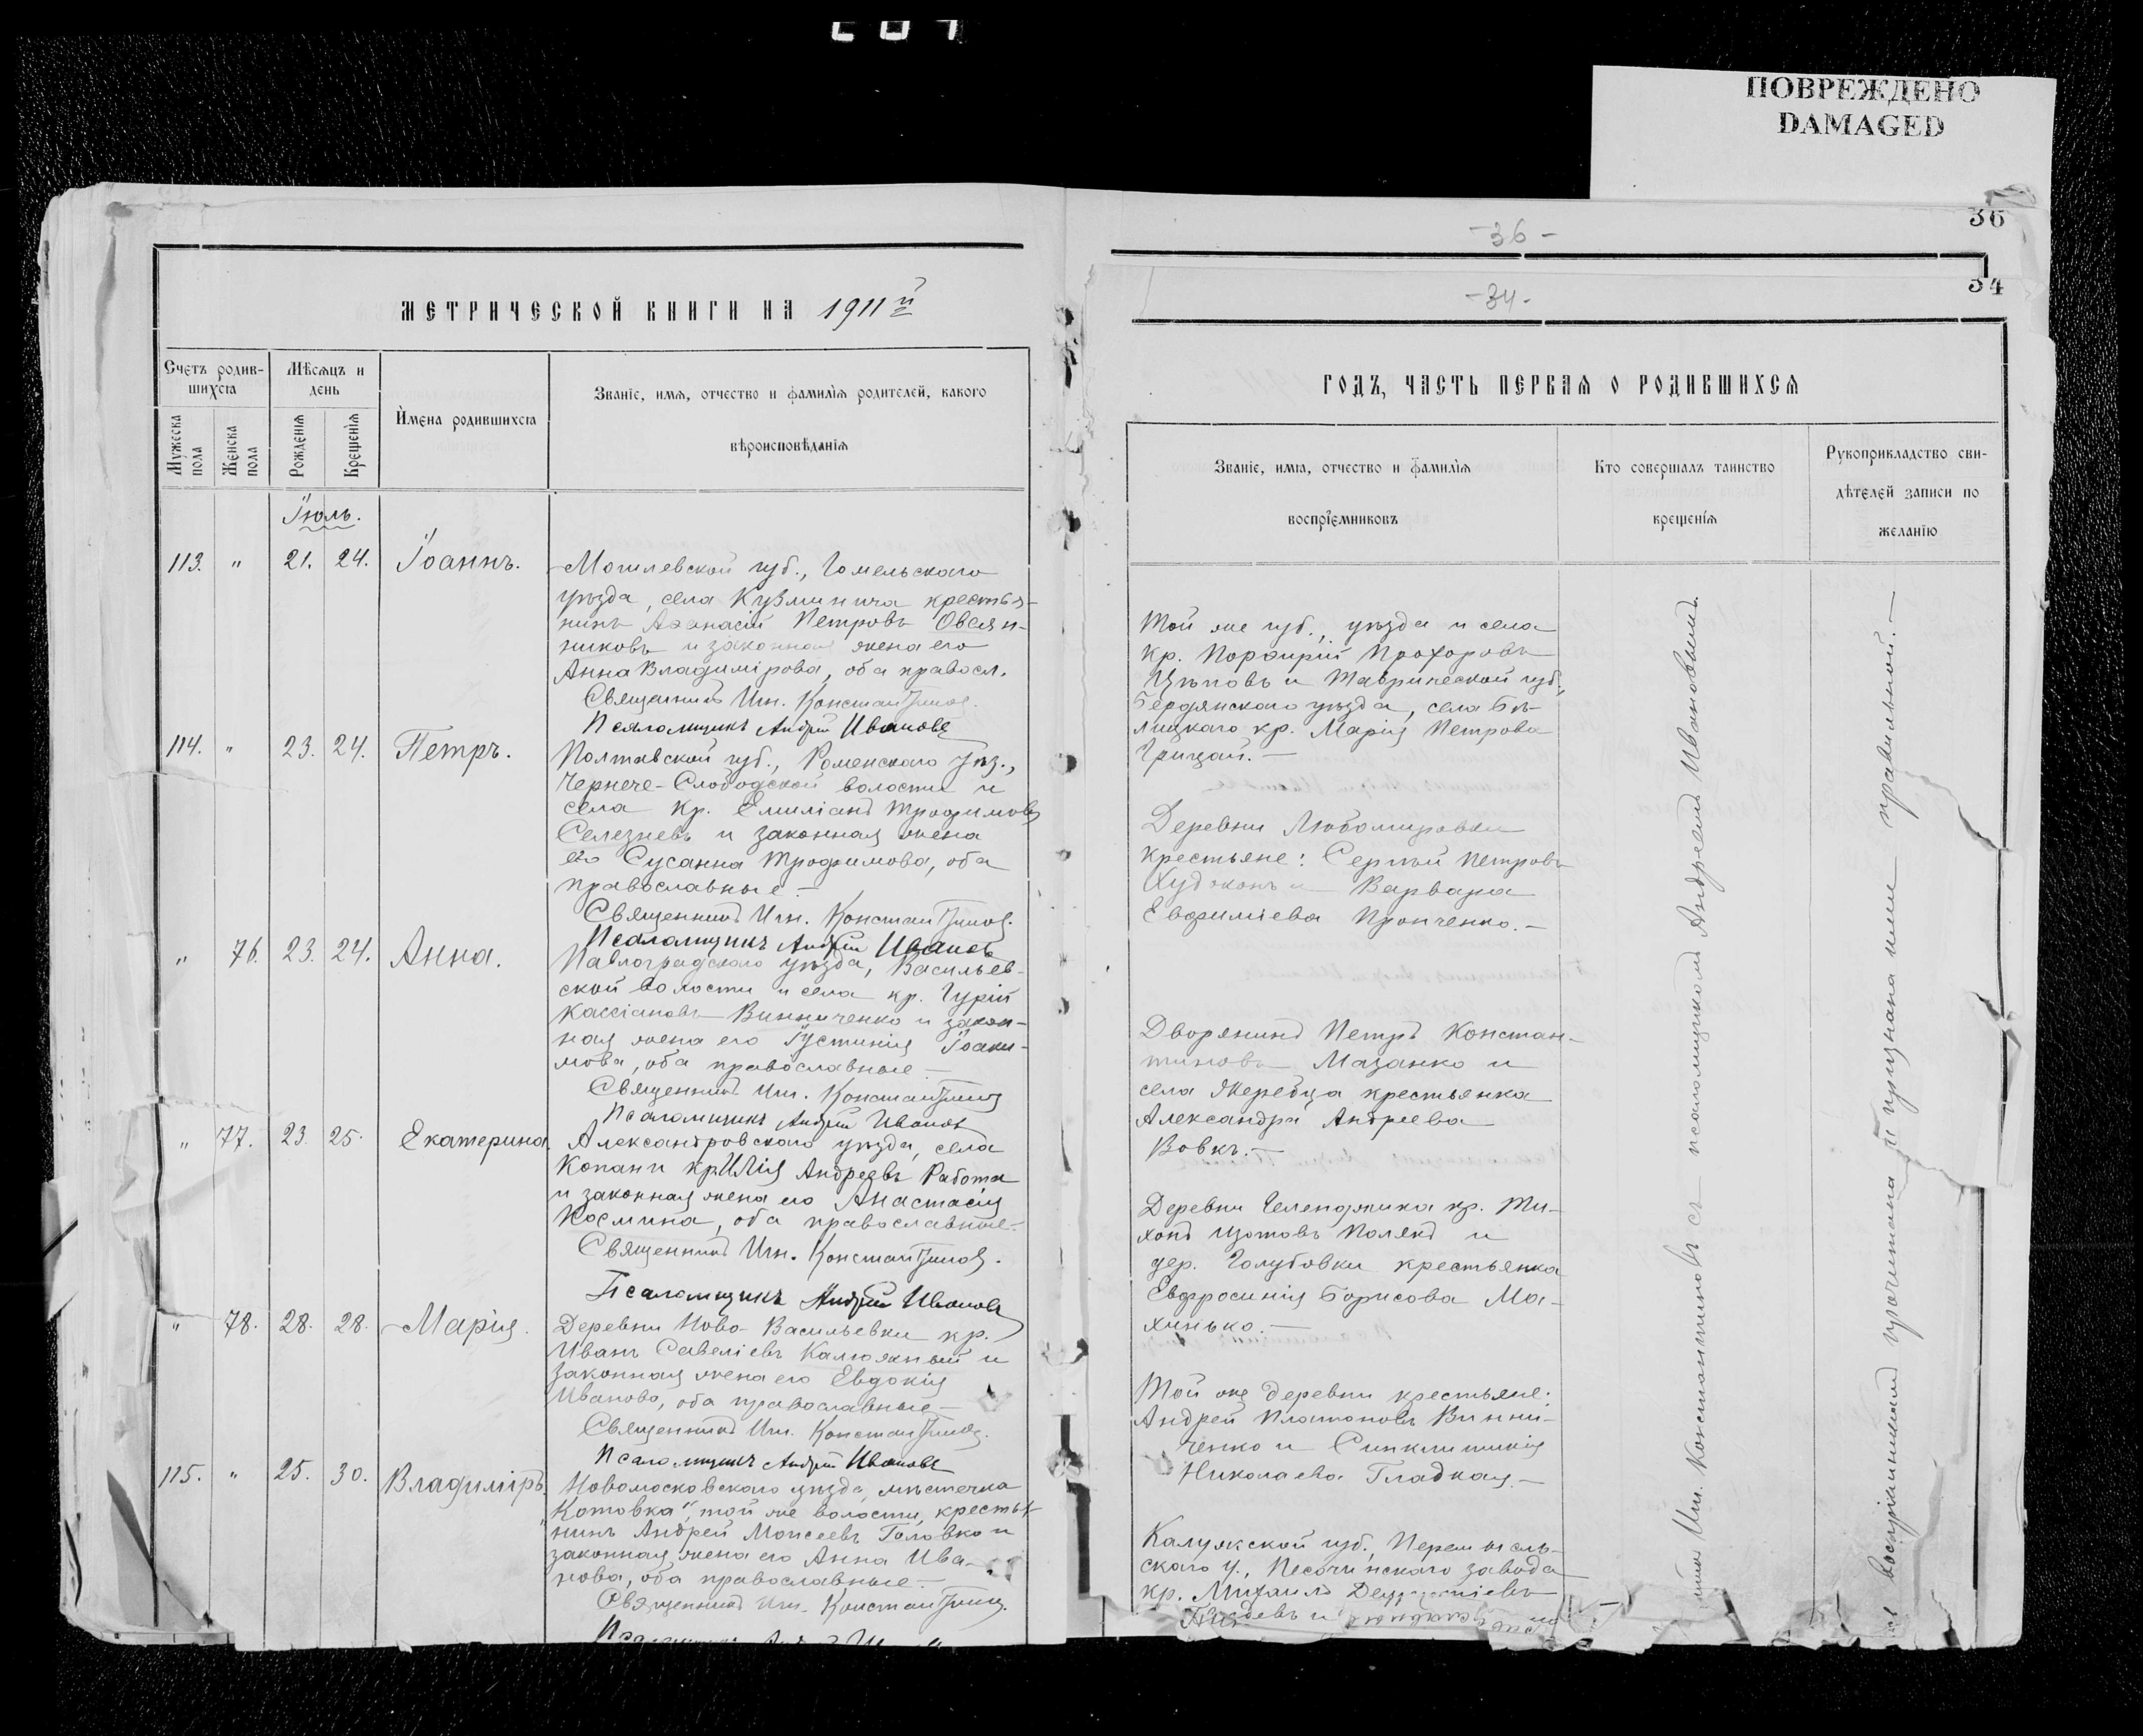 ПОВРЕЖДЕНО
DAMAGED
36
-36-
34
-34-
МЕТРИЧЕСКОЙ КНИГИ НА 1911й
Счетъ родив-
шихсѧ
Мѣсѧцъ и
день
Имена родившихсѧ
Званіе, имѧ, отчество и фамиліѧ родителей, какого
вѣроисповѣданіѧ
Мужеска
пола
Женска
пола
Рожденіѧ
Крещеніѧ
Іюль.
113. " 21. 24. Іоаннъ.
Могилевской губ., Гомельскаго
уѣзда, села Кузминича крестья-
нинъ Аѳанасій Петровъ Овсян-
никовъ и законная жена его
Анна Владимірова, оба правосл.
Священникъ Иг. Константиновъ.
Псаломщикъ Андрей Ивановъ
114. " 23. 24. Петръ.
Полтавской губ., Роменскаго уѣз.,
Чернече-Слободской волости и
села кр. Емиліанъ Трофимовъ
Селезневъ и законная жена
его Сусанна Трофимова, оба
православные –
Священникъ Иг. Константиновъ.
Псаломщикъ Андрей Ивановъ
" 76. 23. 24. Анна.
Павлоградскаго уѣзда, Васильев-
ской волости и села кр. Гурій
Кассіановъ Винниченко и закон-
ная жена его Іустинія Іоаки-
мова, оба православные –
Священникъ Иг. Константиновъ
Псаломщикъ Андрей Ивановъ
" 77. 23. 25. Екатерина.
Александровскаго уѣзда, села
Копани кр. Илія Андреевъ Работа
и законная жена его Анастасія
Космина, оба православные –
Священникъ Иг. Константиновъ.
Псаломщикъ Андрей Ивановъ
" 78. 28. 28. Марія.
Деревни Ново-Васильевки кр.
Иванъ Савеліевъ Калюжный и
законная жена его Евдокія
Иванова, оба православные –
Священникъ Иг. Константиновъ.
Псаломщикъ Андрей Ивановъ
115. " 25. 30. Владиміръ.
Новомосковскаго уѣзда, мѣстечка
"Котовка", той же волости, крестья-
нинъ Андрей Моисеевъ Головко и
законная жена его Анна Ива-
нова, оба православные –
Священникъ Иг. Константиновъ.
ГОДЪ, ЧАСТЬ ПЕРВАѦ О РОДИВШИХСѦ
Званіе, имѧ, отчество и фамиліѧ
воспріемниковъ
Кто совершалъ таинство
крещеніѧ
Рукоприкладство сви-
дѣтелей записи по
желанію
Той же губ., уѣзда и села
кр. Порфирій Прохоровъ
Цѣповъ и Таврической губ.,
Бердянскаго уѣзда, села Бѣ-
лицкаго кр. Марія Петрова
Грицай. –
Деревни Любомировки
крестьяне: Сергѣй Петровъ
Варвара
Евфиміева Пронченко. –
Дворянинъ Петръ Констан-
тиновъ Мазанко и
села Жеребца крестьянка
Александра Андреева
Вовкъ. –
Деревни Геленджика кр. Ти-
хонъ Изотовъ Полякъ и
дер. Голубовки крестьянка
Евфросинія Борисова Ма-
хинько. –
Той же деревни крестьяне:
Андрей Платоновъ Винни-
ченко и Синклитикія
Николаева Гладкая –
Калужской губ., Перемысль-
скаго у., Песочинскаго завода
кр. Михаилъ
Иг. Константиновъ съ псаломщикомъ Андреемъ Ивановымъ.
прочитана и признана нами правильной. –